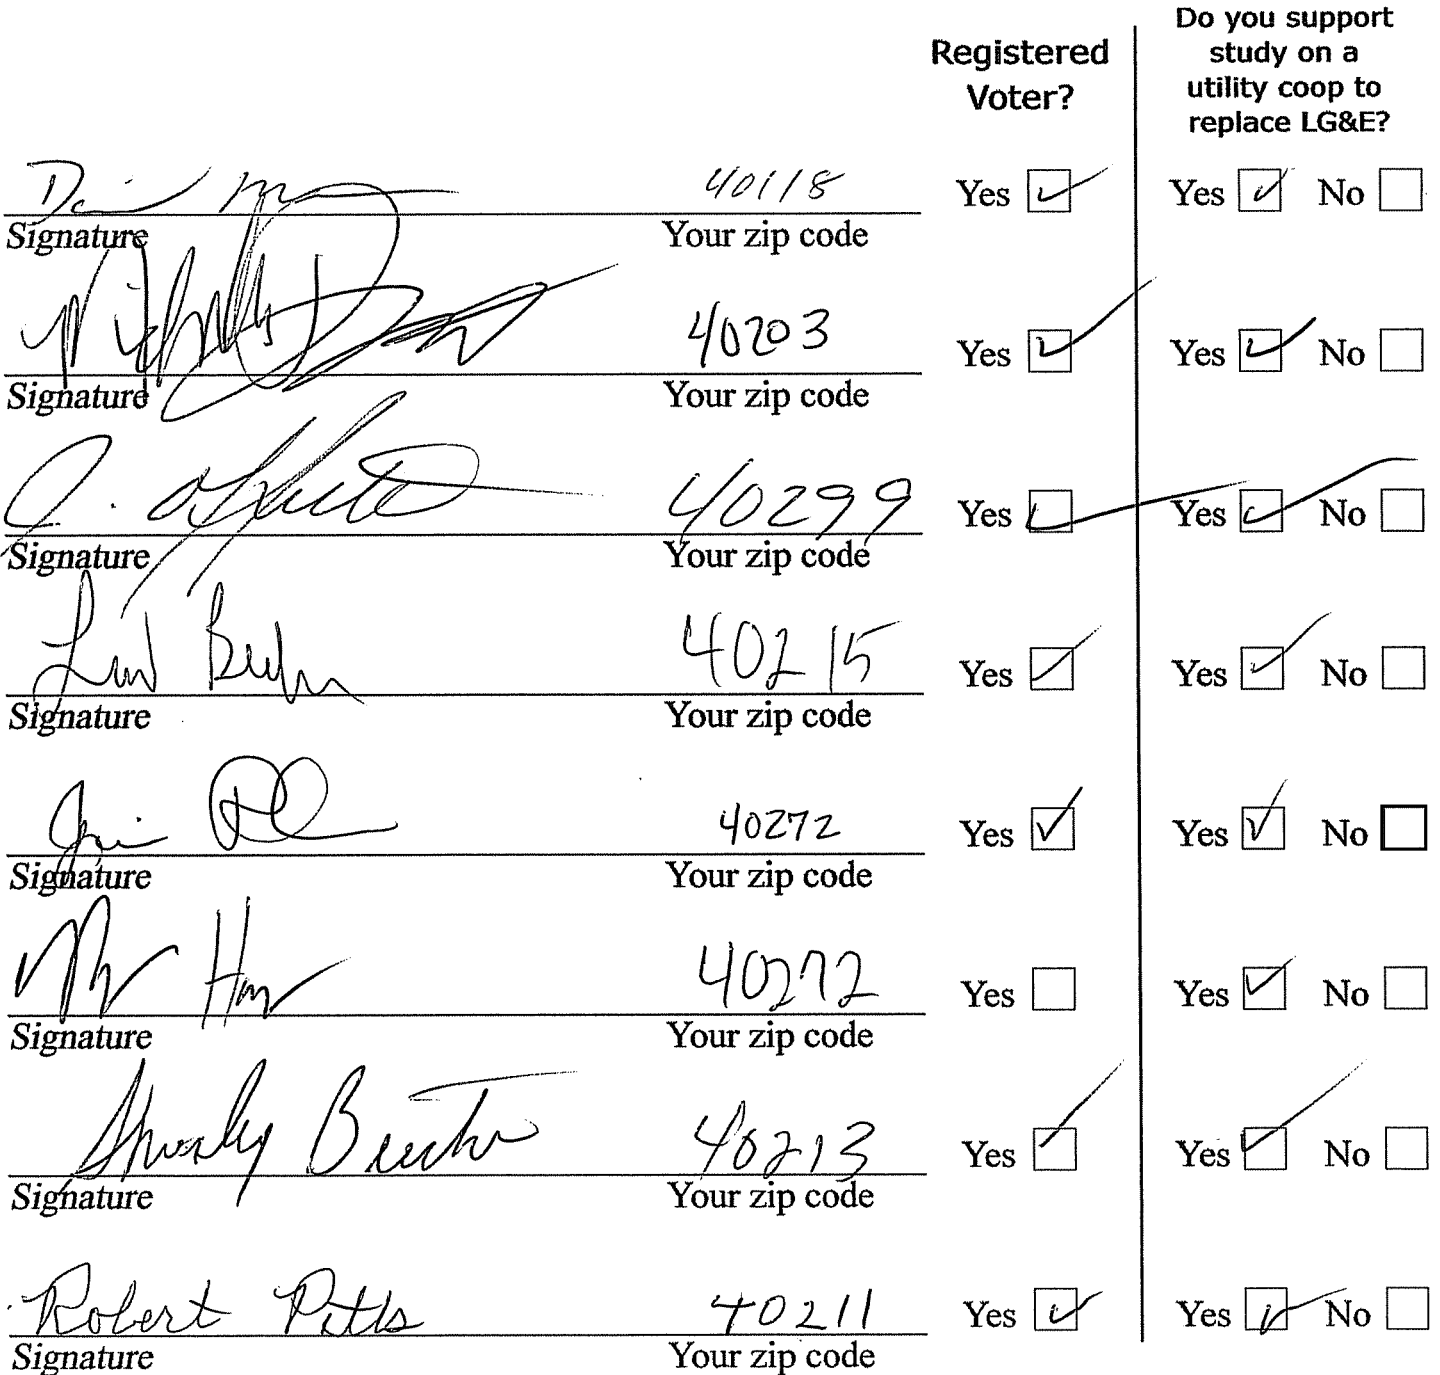 Do you support
study on a
utility coop to
replace LG&E?
Registered
Voter?
40118 Yes Yes No
Signature Your zip code
40203 Yes Yes No
Signature Your zip code
40299 Yes Yes No
Signature Your zip code
40215 Yes Yes No
Signature Your zip code
40272 Yes Yes No
Signature Your zip code
40272 Yes Yes No
Signature Your zip code
40213 Yes Yes No
Signature Your zip code
Robert Pitts 40211 Yes Yes No
Signature Your zip code